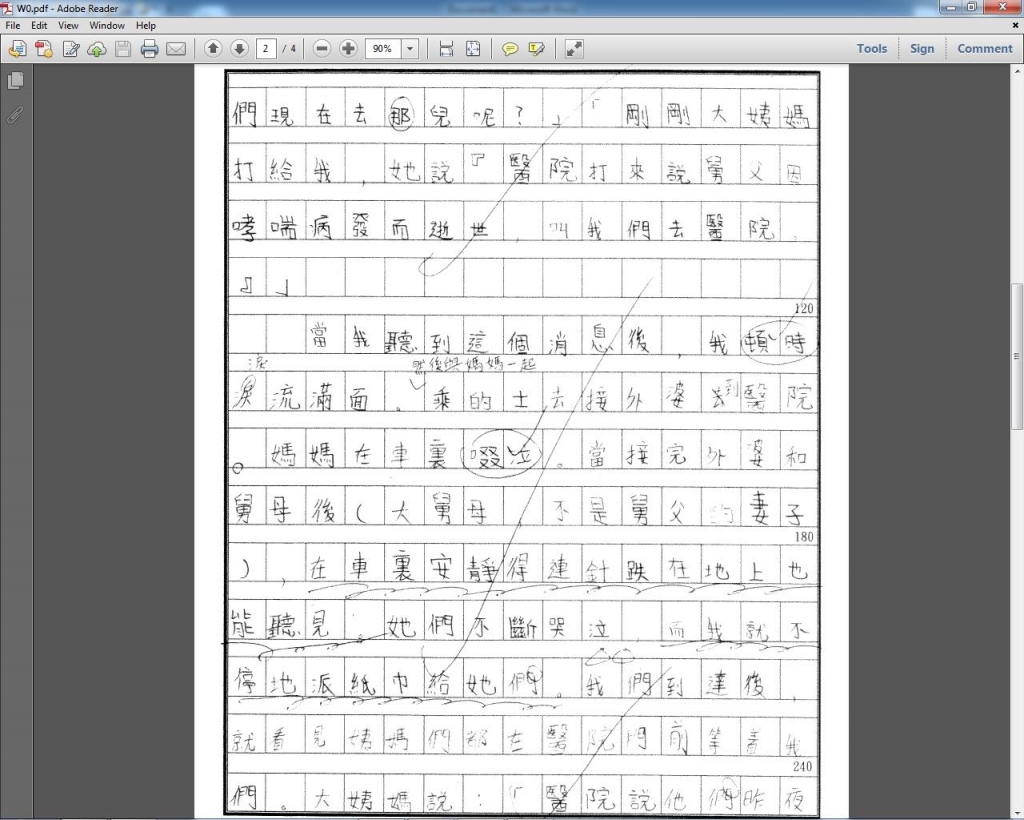 W0.pdf - Adobe Reader
File Edit View Window Help
2 / 4 90% Tools Sign Comment
們現在去那兒呢？」「剛剛大姨媽
打給我，她說『醫院打來說舅父因
哮喘病發而逝世，叫我們去醫院。
』」
120
當我聽到這個消息後，我頓時
淚 然後與媽媽一起
淚流滿面。乘的士去接外婆去到醫院
。媽媽在車裏啜泣。當接完外婆和
舅母後（大舅母，不是舅父的妻子
180
），在車裏安靜得連針跌在地上也
能聽見。她們不斷哭泣，而我就不
停地派紙巾給她們。我們到達後，
就看見姨媽們都在醫院門前等着我
240
們。大姨媽說：「醫院說他們昨夜